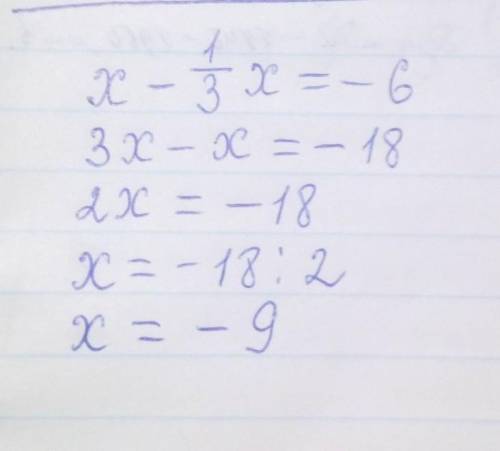 x - 1/3 x = - 6
3x - x = - 18
2x = - 18
x = - 18 : 2
x = - 9